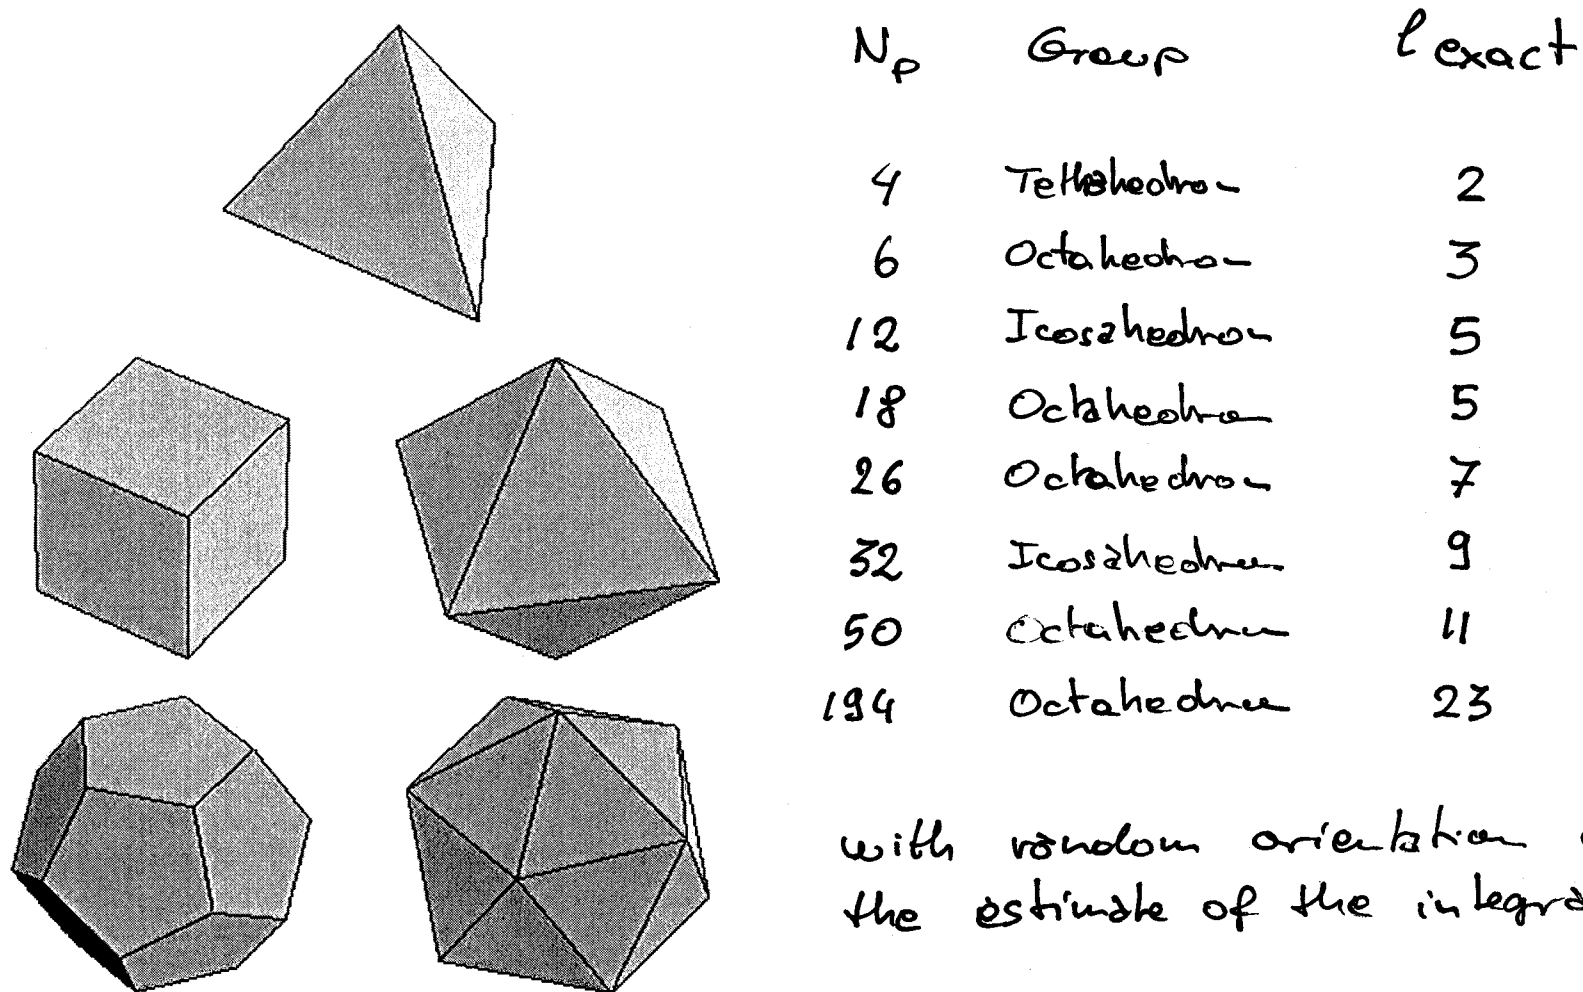 Np Group l exact
4 Tetrahedron 2
6 Octahedron 3
12 Icosahedron 5
18 Octahedron 5
26 Octahedron 7
32 Icosahedron 9
50 Octahedron 11
194 Octahedron 23
with random orientation
the estimate of the integra